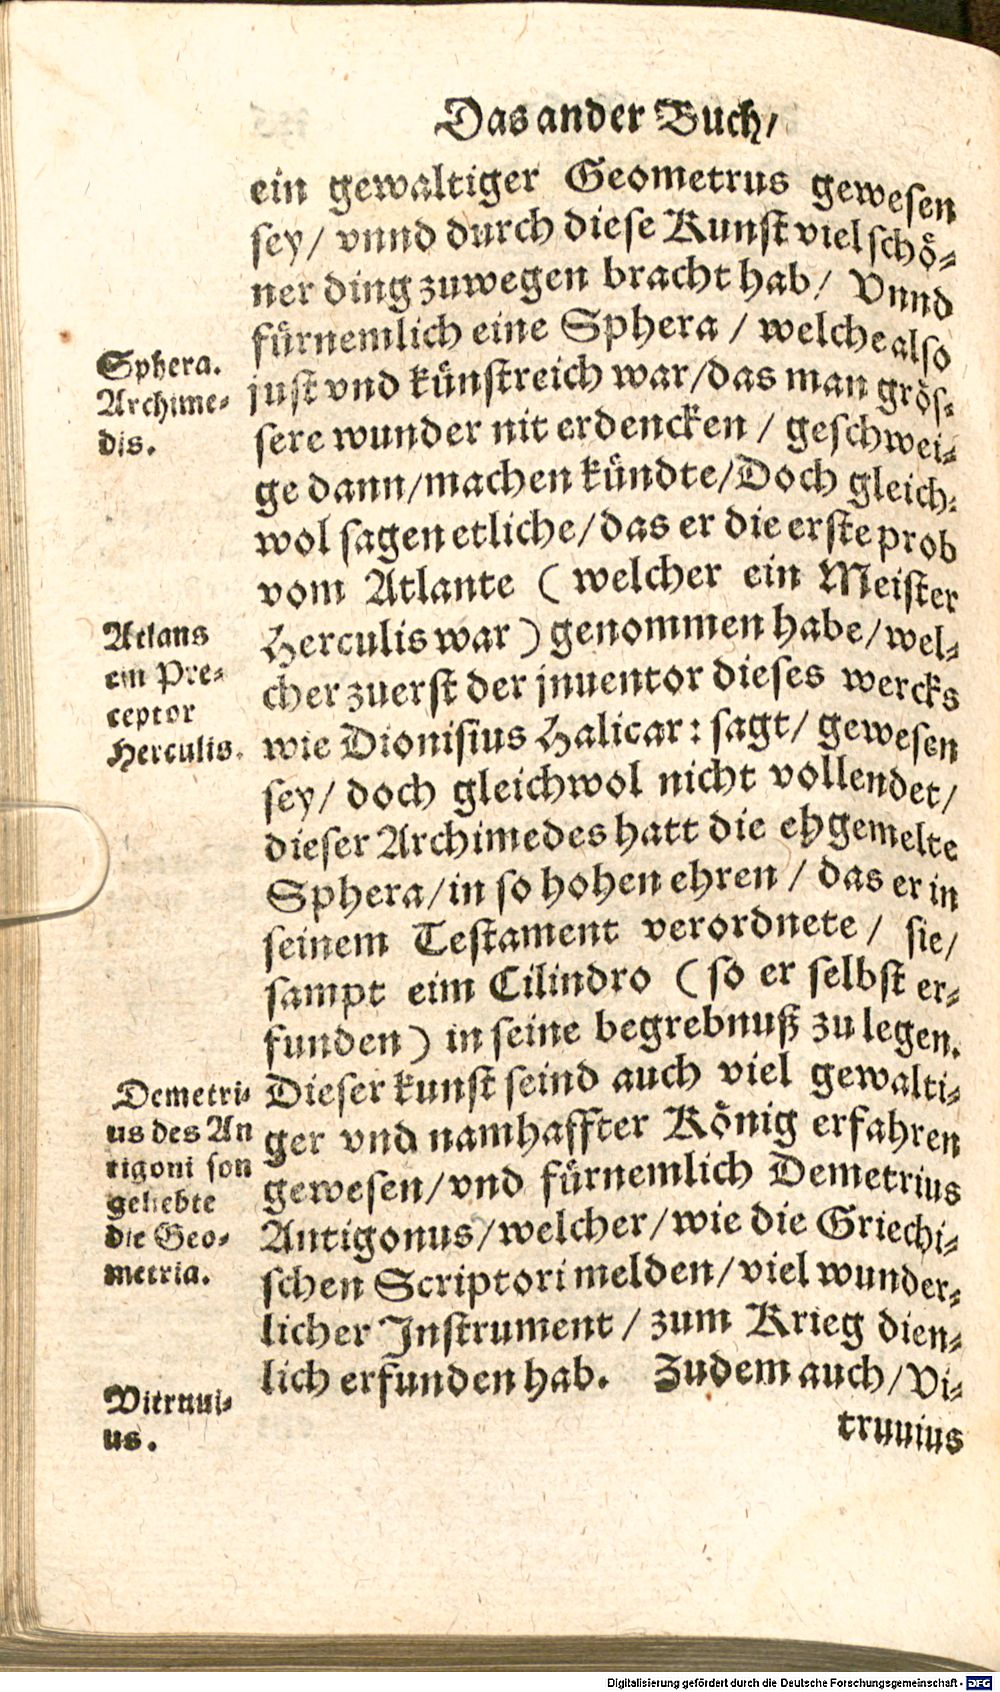 Das ander Buch/
ein gewaltiger Geometrus gewesen
sey/ vnnd durch diese Kunst viel schö-
ner ding zuwegen bracht hab/ Vnnd
fürnemlich eine Sphera / welche also
just vnd künstreich war/das man grös-
sere wunder nit erdencken / geschwei-
ge dann/machen kündte/Doch gleich-
wol sagen etliche/das er die erste prob
vom Atlante ( welcher ein Meister
Herculis war ) genommen habe/wel-
cher zuerst der jnuentor dieses wercks
wie Dionisius Halicar: sagt/ gewesen
sey/ doch gleichwol nicht vollendet/
dieser Archimedes hatt die ehgemelte
Sphera/in so hohen ehren / das er in
seinem Testament verordnete / sie/
sampt eim Cilindro ( so er selbst er-
funden ) in seine begrebnuß zu legen.
Dieser kunst seind auch viel gewalti-
ger vnd namhaffter König erfahren
gewesen/vnd fürnemlich Demetrius
Antigonus/welcher/wie die Griechi-
schen Scriptori melden/viel wunder-
licher Instrument / zum Krieg dien-
lich erfunden hab. Zudem auch/Vi-
truuius
Sphera.
Archime-
dis.
Atlans
ein Pre-
ceptor
Herculis.
Demetri-
us des An
tigoni son
geliebte
die Geo-
metria.
Vitruui-
us.
Digitalisierung gefördert durch die Deutsche Forschungsgemeinschaft - DFG